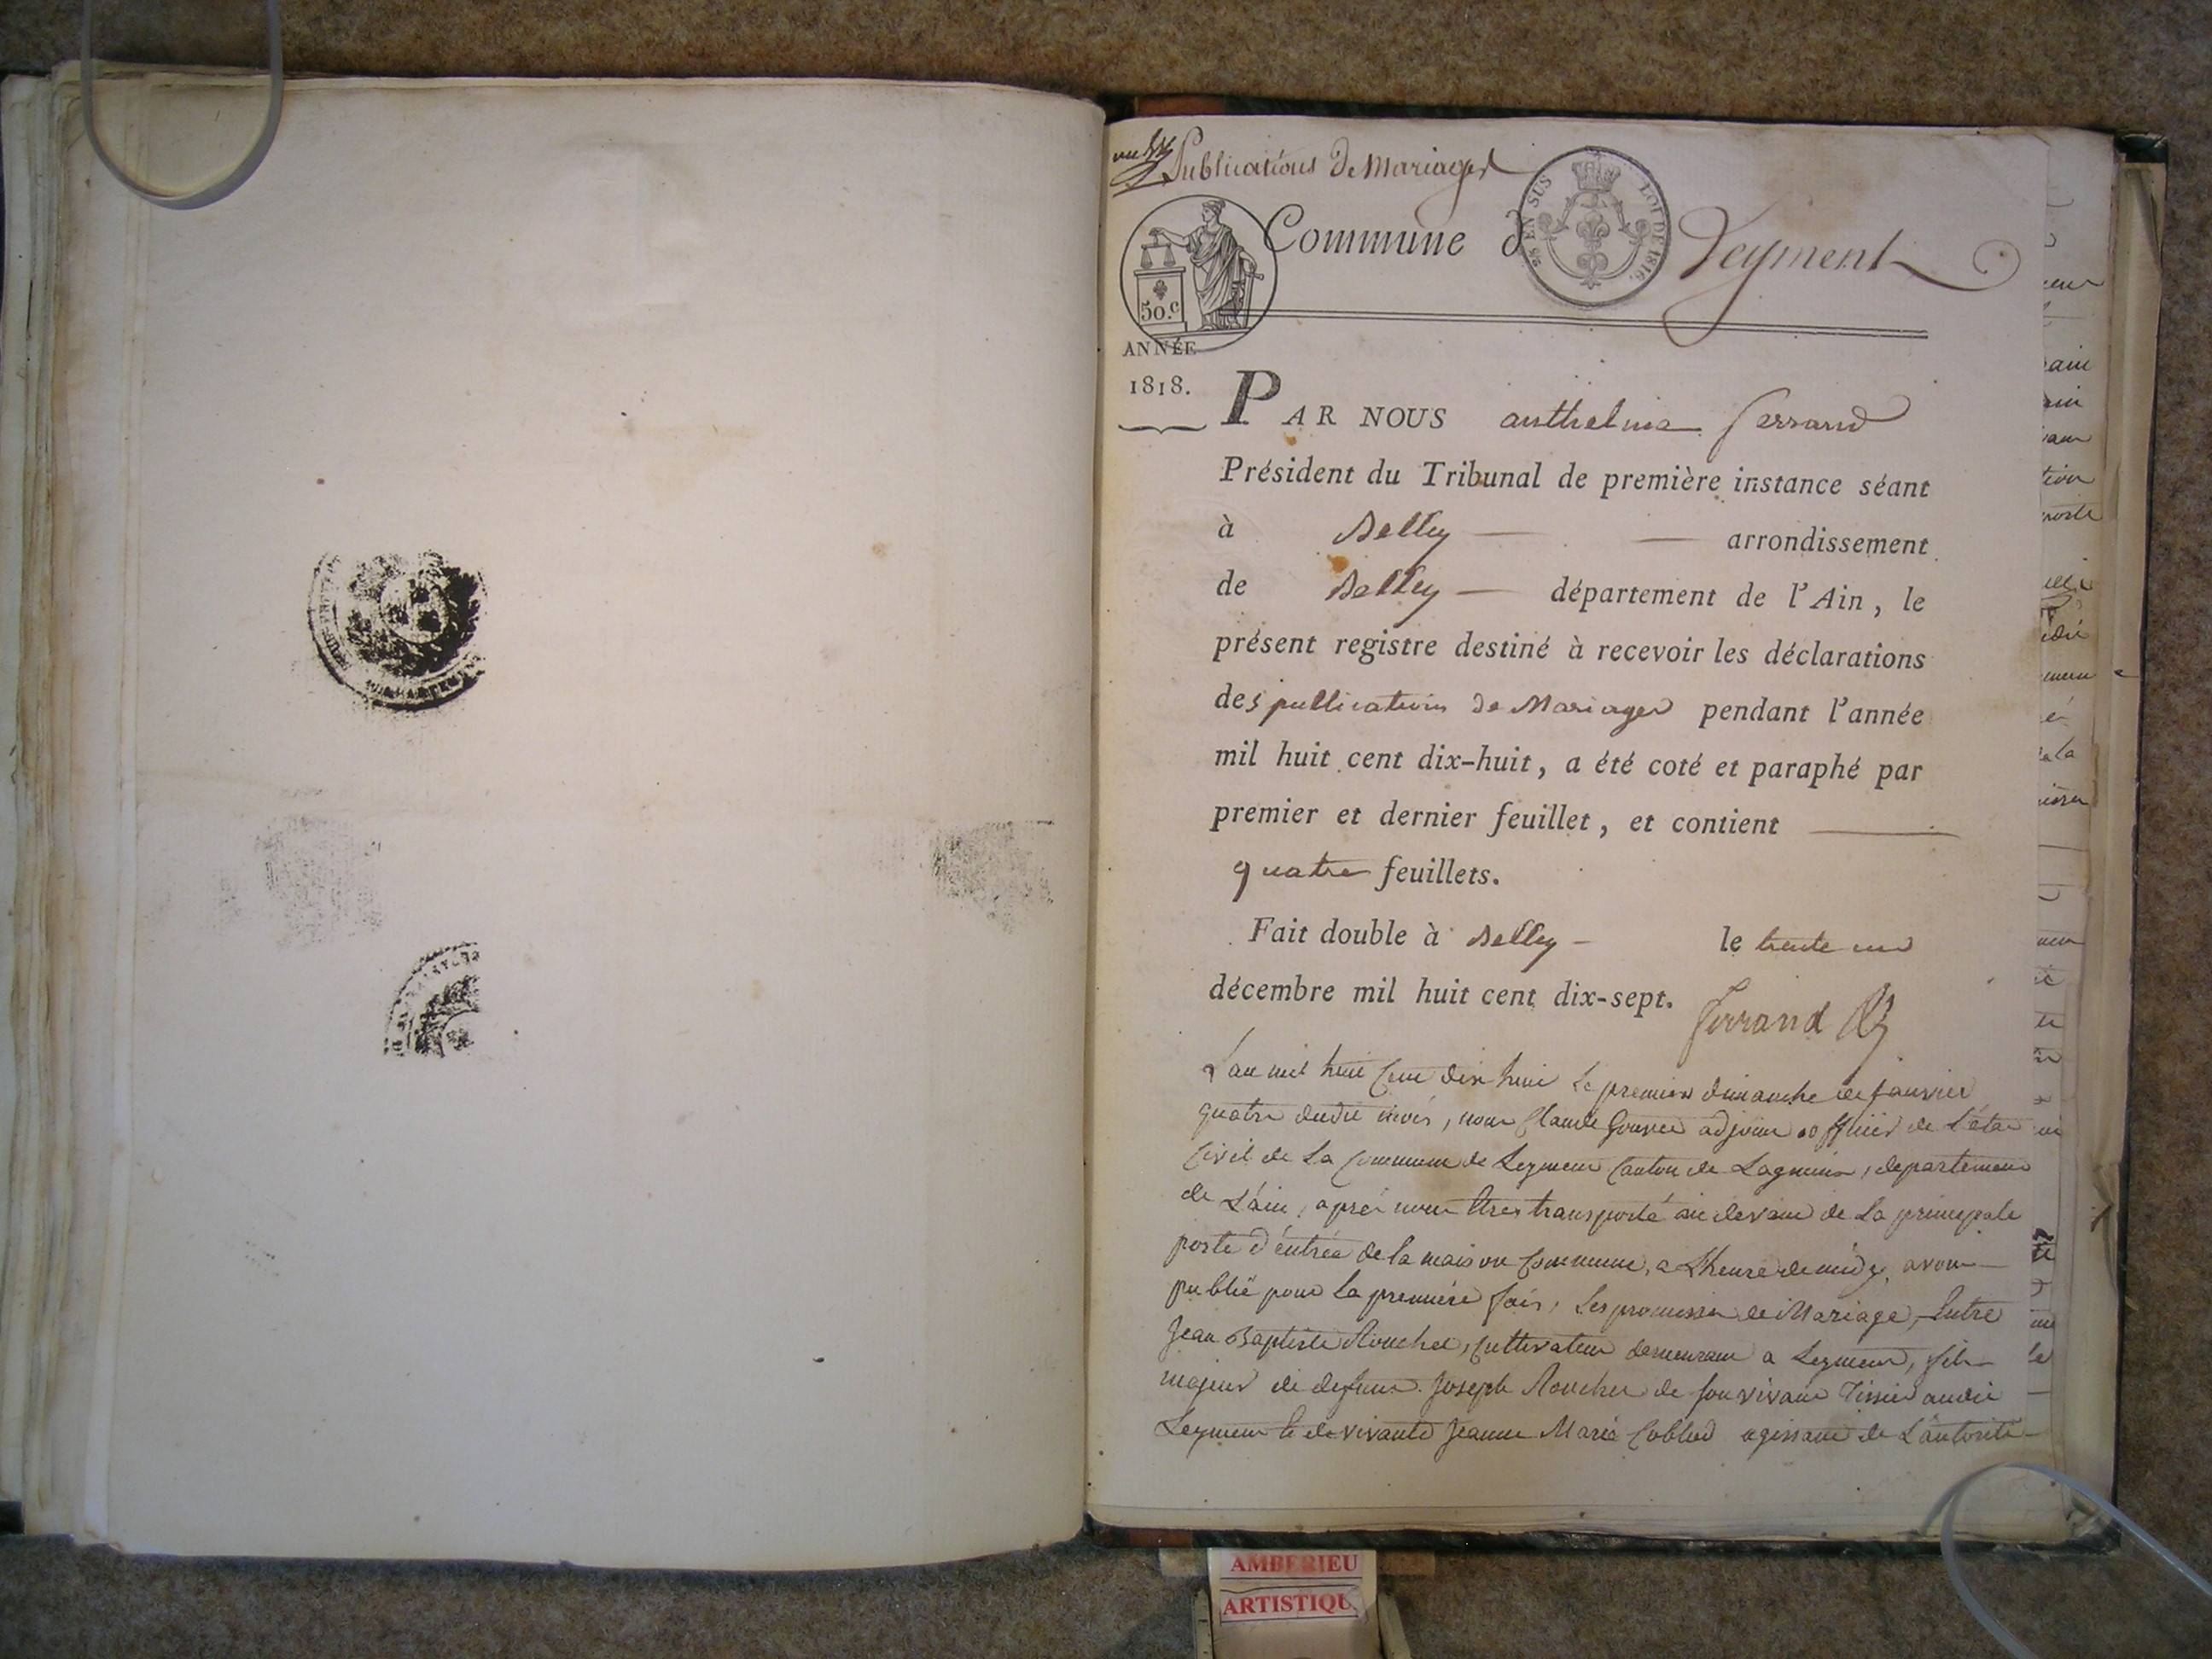 Publications de Mariages
Commune de Leyment
25 EN SUS LOI DE 1816.
50.c
ANNÉE
1818.
PAR NOUS anthelme ferrand
Président du Tribunal de première instance séant
à Belley arrondissement
de Belley département de l'Ain, le
présent registre destiné à recevoir les déclarations
des publications de Mariages pendant l'année
mil huit cent dix-huit, a été coté et paraphé par
premier et dernier feuillet, et contient
quatre feuillets.
Fait double à Belley le trente un
décembre mil huit cent dix-sept.
ferrand
L'an mil huit Cent dix huit le premier dimanche de janvier
quatre dudit mois, nous Claude adjoint officier de L'état
Civil de La Commune de Leyment Canton de Lagnieu, departement
de L'ain, après nous etres transporté au devant de La principale
porte d'éntrée de la maison Commune, a L'heure de midy, avons
publié pour La premiére fois, Les promesses de Mariage, Entre
Jean Baptiste Rouchet, Cultivateur demeurant a Leyment, fils
majeur de defunt Joseph Rouchet de son vivant Tissier audit
Leyment et de vivante Jeanne Marie agissant de L'autorité
AMBERIEU
ARTISTIQU